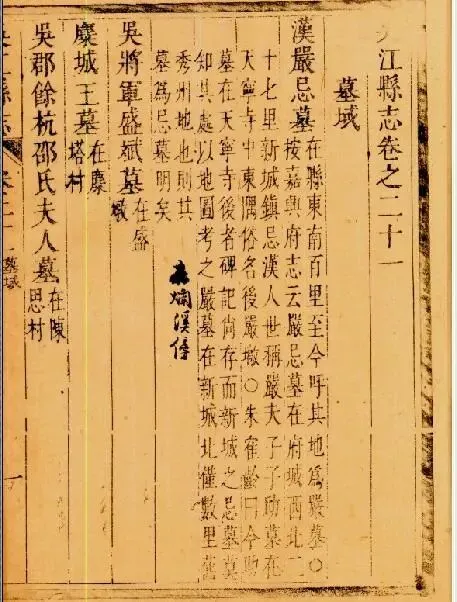 江縣志卷之二十一
墓域
漢嚴忌墓
在縣東南百里至今呼其地為嚴墓○
按嘉興府志云嚴忌墓在府城西北二
十七里新城鎮忌漢人世稱嚴夫子子助墓在
天寧寺中東隅俗名後嚴墩○朱鶴齡曰今助
墓在天寧寺後者碑記尚存而新城之忌墓莫
知其處以地圖考之嚴墓在新城北僅數里舊
秀洲地也則其
墓為忌墓明矣
在爛溪傍
吳將軍盛斌墓
在盛
墩
麋城王墓
在麋
塔村
吳郡餘杭邵氏夫人墓
在陳
思村
江縣志
墓域